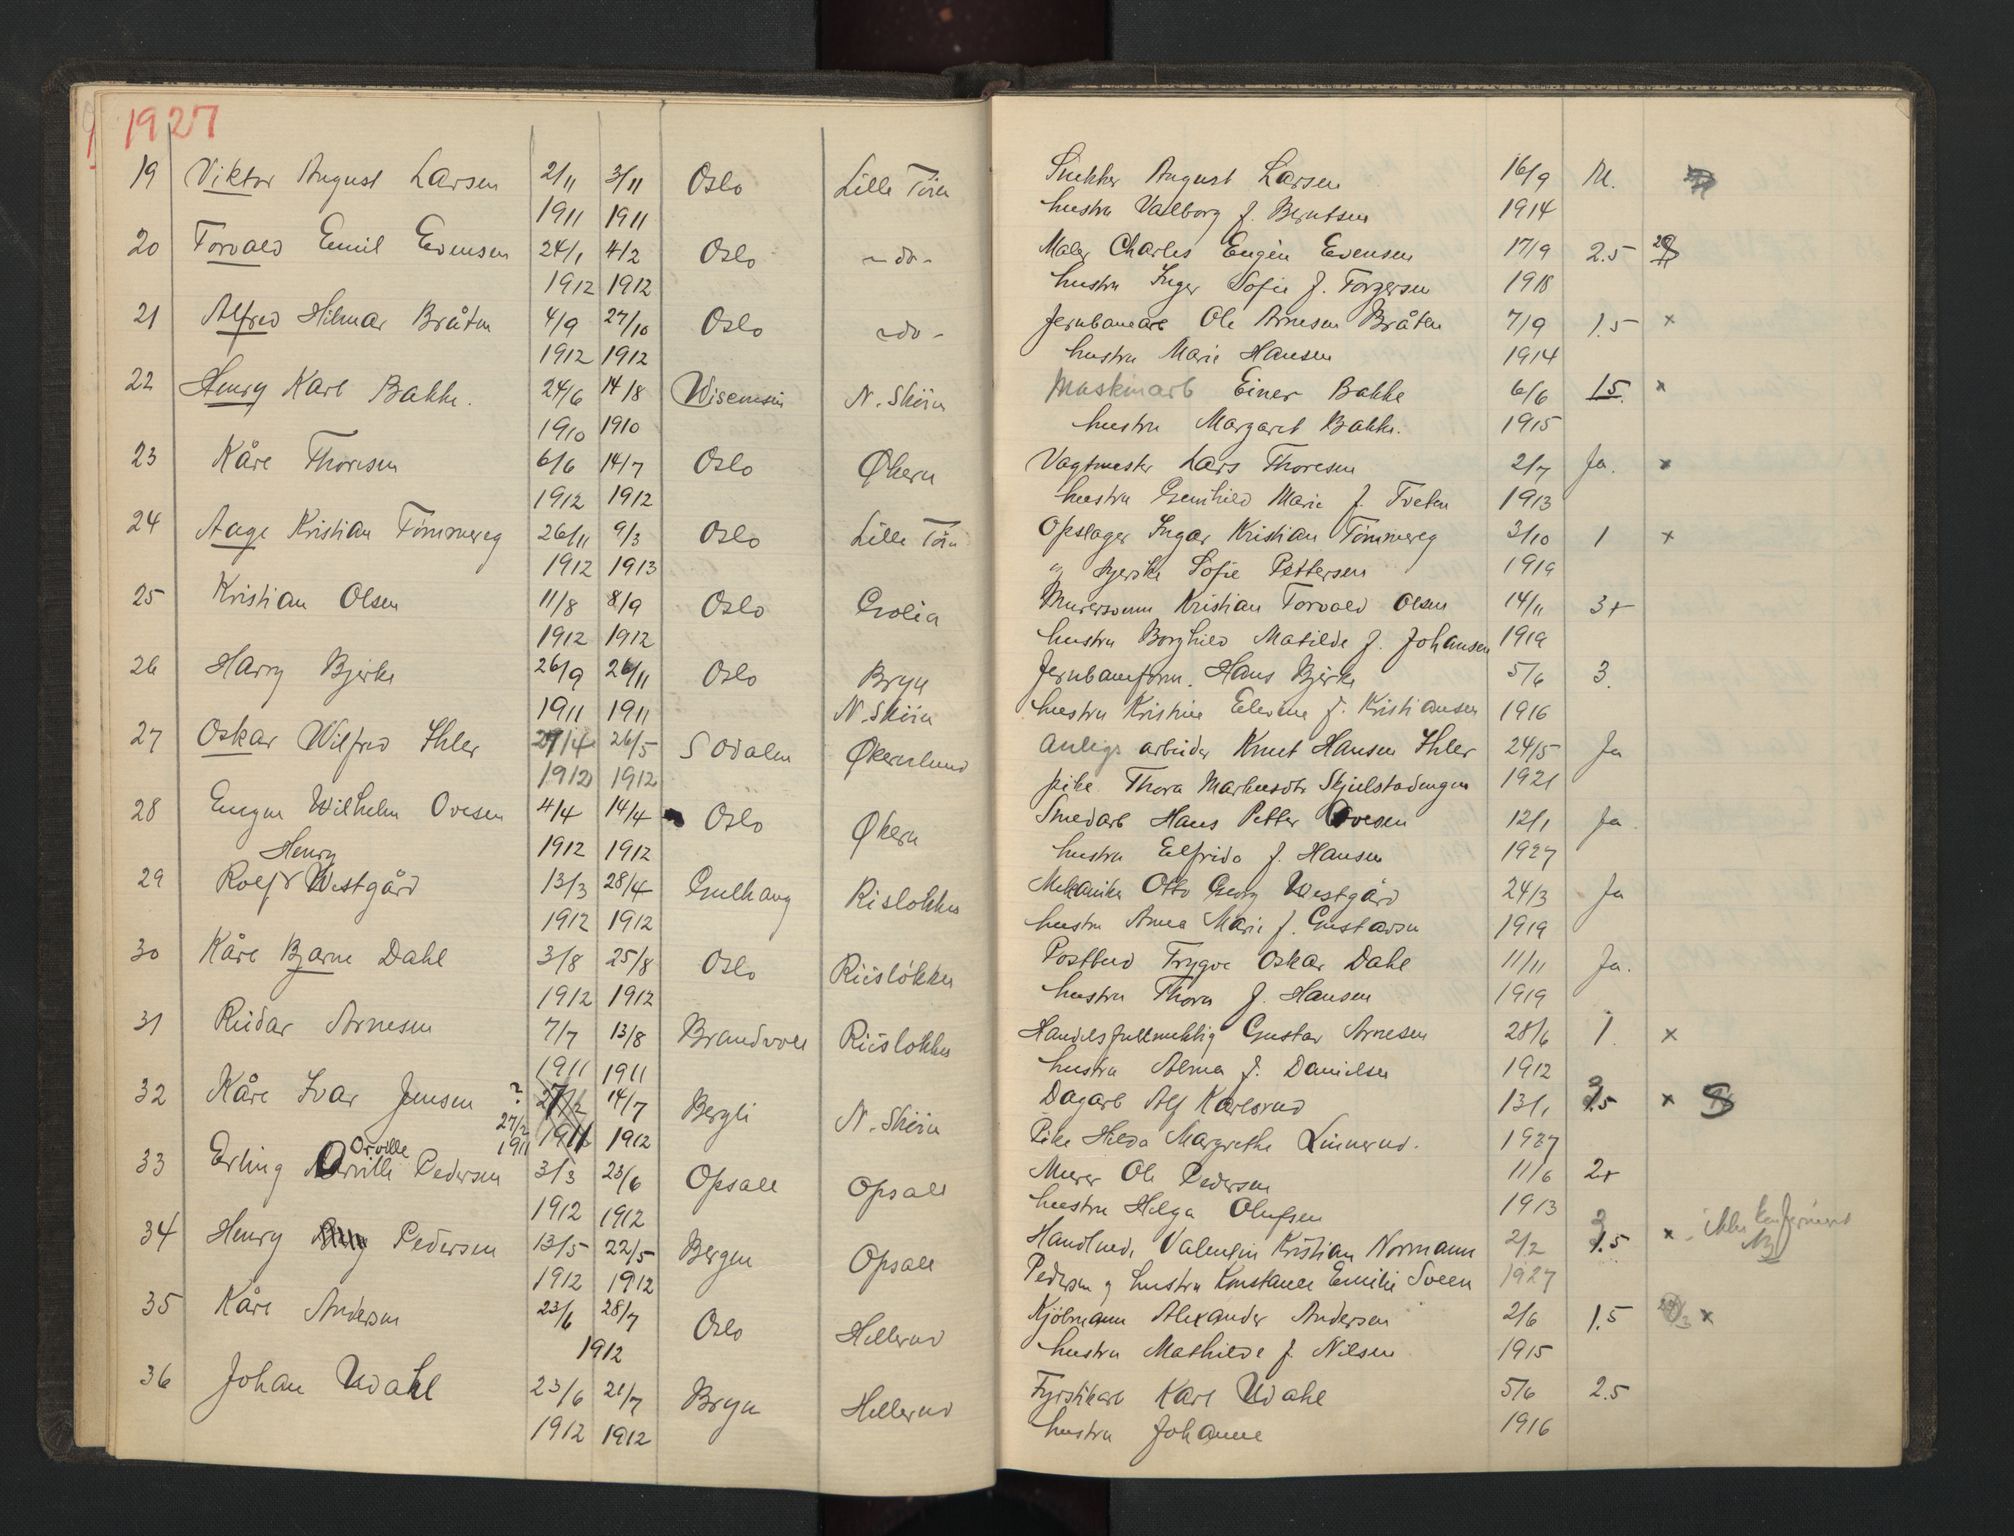 1927
19 Viktor August Larsen 2/11 3/11 Oslo Lille Tøien Snekker August Larsen 16/9 M.
1911 1911 hustru Valborg f. Berntsen 1914
20 Torvald Emil Evensen 24/1 4/2 Oslo -do- Maler Charles Eugén Evensen 17/9 2.5
1912 1912 hustru Inger Sofie f. Torgersen 1918
21 Alfred Hilmar Bråten 4/9 27/10 Oslo -do- Jernbanearb Ole Arnesen Bråten 7/9 1.5 x
1912 1912 hustru Marie Hansen 1914
22 Henry Karl Bakke. 24/6 14/8 Wisconsin N. Skøien Maskinarb Einer Bakke 6/6 15. x
1910 1910 hustru Margaret Bakke. 1915
23 Kåre Thoresen 6/6 14/7 Oslo Økern Vagtmester Lars Thoresen 2/7 Ja. x
1912 1912 hustru Gunhild Marie f. Tveten 1913
24 Aage Kristian Tømmereg 26/11 9/3 Oslo Lille Tøien Opslager Ingar Kristian Tømmereg 3/10 1 x
1912 1913 og Syerske Sofie Pettersen 1919
25 Kristian Olsen 11/8 8/9 Oslo Golia Murersvenn Kristian Torvald Olsen 14/11 3+
1912 1912 hustru Borghild Matilde f. Johansen 1919
26 Harry Bjerke 26/9 26/11 Oslo Bryn Jernbaneform. Hans Bjerke 5/6 3.
1911 1911 N. Skøien hustru Kristine Elevine f. Kristiansen 1916
27 Oskar Wilfred Ihler 29/4 26/5 S Odalen Økernlund Anlegs arbeider Knut Hansen Ihler 24/5 Ja
1912 1912 pike Thora Markusdtr Skjelstadengen 1921
28 Eugen Wilhelm Ovesen 4/4 14/4 Oslo Økern Smedarb Hans Petter Ovesen 12/1 Ja
1912 1912 hustru Elfrida f. Hansen 1927
Henry
29 Rolf Westgård 13/3 28/4 Gulhaug Risløkka Mekanike Otto Georg Westgård 24/3 Ja
1912 1912 hustru Anna Marie f. Gustavsen 1919
30 Kåre Bjarne Dahl 3/8 25/8 Oslo Riisløkka Postbud Trygve Oskar Dahl 11/11 Ja.
1912 1912 hustru Thora f. Hansen 1919
31 Reidar Arnesen 7/7 13/8 Brandvoll Riisløkka Handelsfullmektig Gustav Arnesen 28/6 1. x
1911 1911 hustru Alma f. Danielsen 1912
32 Kåre Ivar Jensen ? 27/2 14/7 Bergli N. Skøien Dagarb Alf Karlsrud 13/1 1.5 x S
27/2 1911 1911 1912 Pike Hilda Margrethe Linnerud. 1927
Orville
33 Erling Orville Pedersen 3/3 23/6 Opsall Opsall Murer Ole Pedersen 11/6 2+
1912 1912 hustru Helga Olufsen 1913
34 Henry Pedersen 13/5 22/5 Bergen Opsall Handlende Valentin Kristian Normann 2/2 1.5 x ikke konfirmert
1912 1912 Pedersen og hustru Konstance Emilie Sveen 1927
35 Kåre Andersen 23/6 28/7 Oslo Hellerud Kjølmann Alexander Andersen 2/6 1.5 x
1912 hustru Mathilde f. Nilsen 1915
36 Johan Udahl 23/6 21/7 Bryn Hellerud Fyrstikarb Karl Udahl 5/6 2.5
1912 1912 hustru Johanne 1916